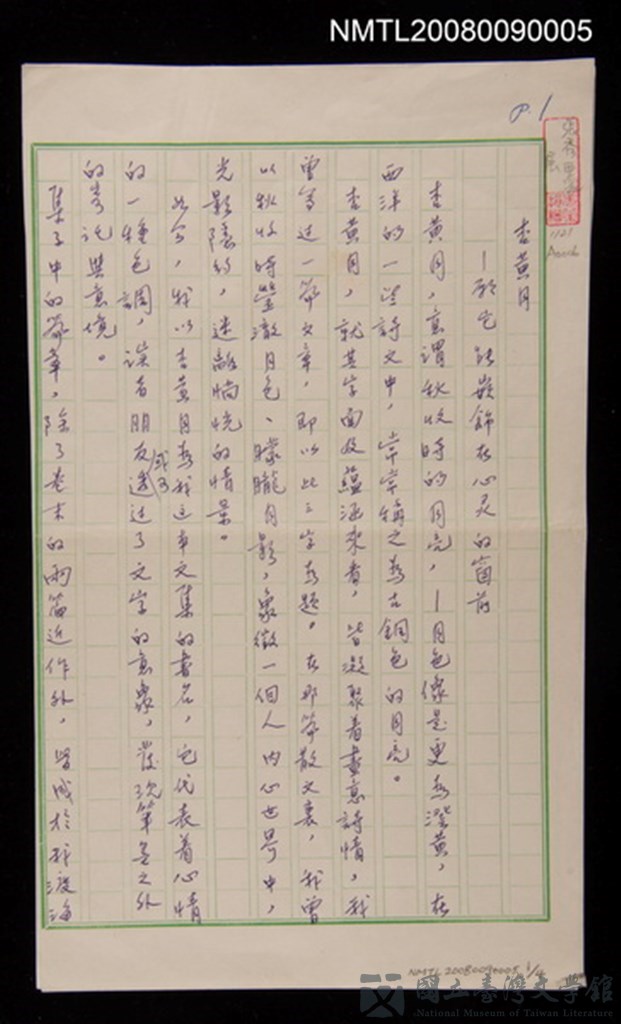 NMTL20080090005
P.1
杏黃月
—願它能嵌飾在心灵的窗前
杏黃月，意謂秋收時的月亮，—月色像是更為澄黃，在
西洋的一些詩文中，常常稱之為古銅色的月亮。
杏黃月，就其字面及蘊涵來看，皆凝聚着畫意詩情，我
曾寫过一篇文章，即以此三字為題。在那篇散文裏，我曾
以秋收時瑩澈月色、矇矓月影，象徵一個人內心世界中，
光影隱約，迷離惝恍的情景。
如今，我以杏黃月為我这本文集的書名，它代表着心情
的一種色調，讀者朋友或可透过了文字的意象，發現筆墨之外
的寄託與意境。
集子中的篇章，除了卷末的兩篇近作外，皆成於我渡海
NMTL20080090005 1/4
國立臺灣文學館
National Museum of Taiwan Literature